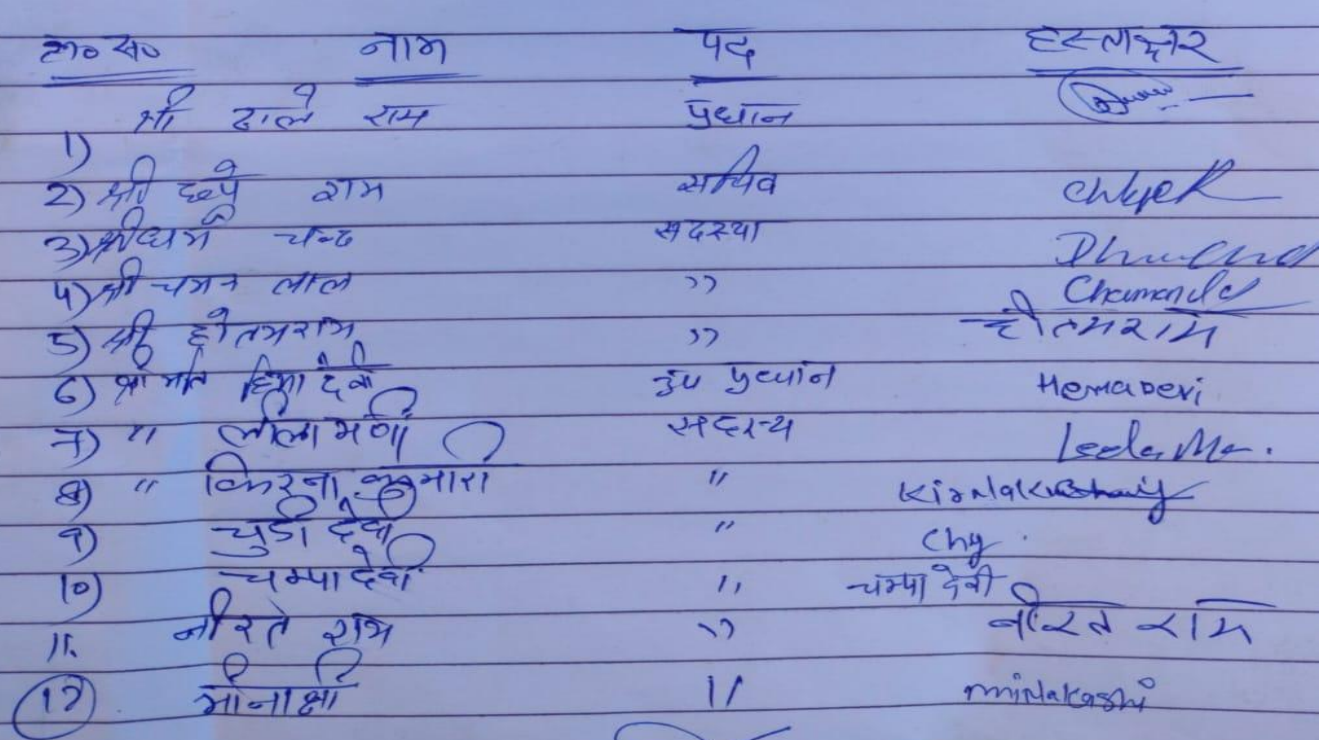 क्र० स० नाम पद हस्ताक्षर
1) श्री ढाले राम प्रधान
2) श्री छपे राम सचिव
3) श्री धर्म चन्द सदस्या
4) श्री चमन लाल ,, Chamanlal
5) श्री होतमराम ,, होतमराम
6) श्री मति हिमा देवी उप प्रधान Hemadevi
7) " लीला मणी सदस्य Leela Ma.
8) " किरना कुमारी "
9) चुडा देवी "
10) चम्पा देवी ,, चम्पा देवी
11. नीरते राम ,, नीरत राम
12 मीनाक्षी 11 minakashi